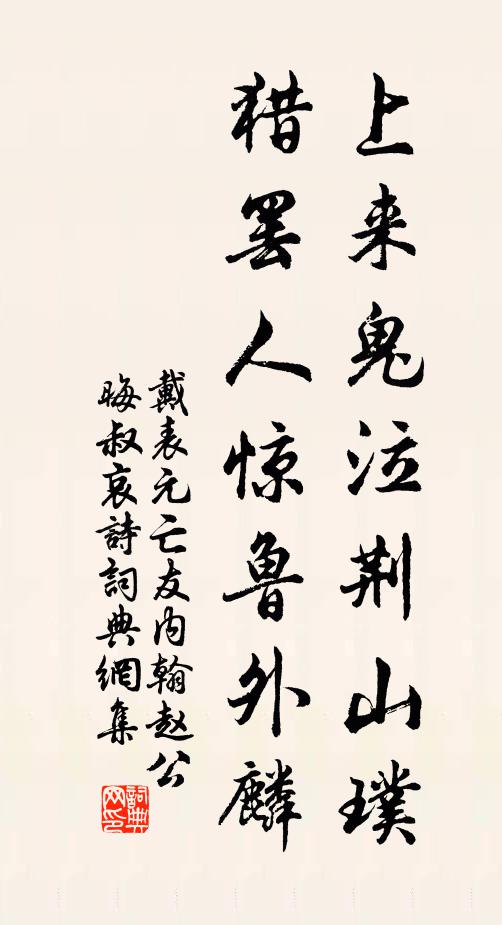 上来鬼泣荆山璞
猎罢人惊鲁外麟
戴表元亡友内翰赵公
晦叔哀詩詞典網集
詞典
网印